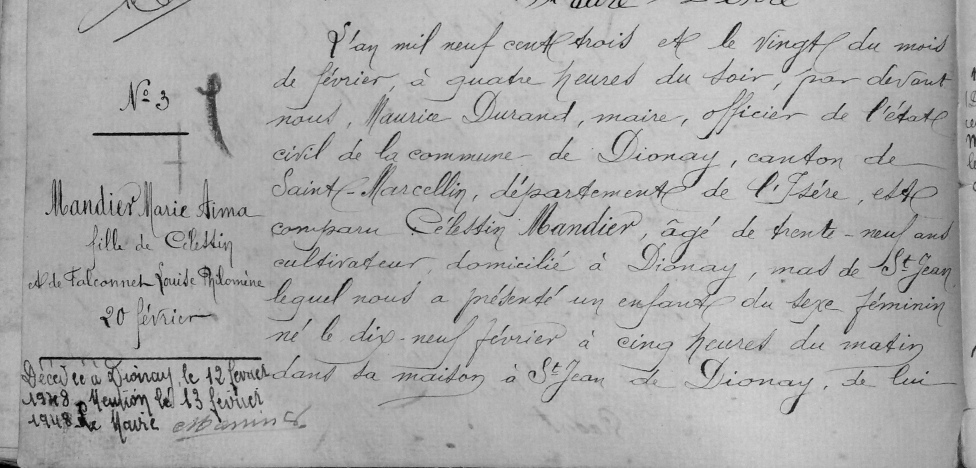 L'an mil neuf cent trois et le vingt du mois
de février, à quatre heures du soir, par devant
nous, Maurice Durand, maire, officier de l'état
civil de la commune de Dionay, canton de
Saint Marcellin, département de l'Isére, est
comparu Célestin Mandier, âgé de trente-neuf ans
cultivateur, domicilié à Dionay, mas de St Jean
lequel nous a présenté un enfant du sexe féminin
né le dix-neuf février à cinq heures du matin
dans sa maison à St Jean de Dionay, de lui
No 3
Mandier Marie Aima
fille de Célestin
et de Falconnet Louise Philomène
20 février
Décédée à Dionay, le 12 février
1948 Mention le 13 février
1948 Le Maire